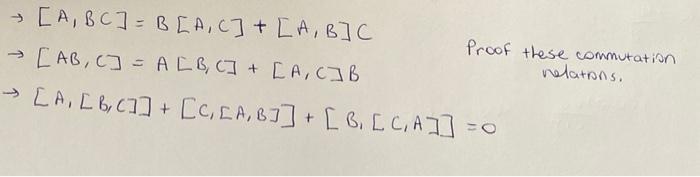 → [A, BC] = B [A, C] + [A, B] C
→ [AB, C] = A [B, C] + [A, C] B
→ [A, [B, C]] + [C, [A, B]] + [B, [C, A]] = 0
Proof these commutation
relations.